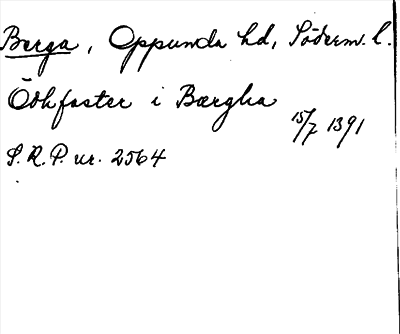 Berga, Oppunda hd, Söderm. l.
Ödhfaster i Bærgha
15/7 1391
S.R.P. nr. 2564